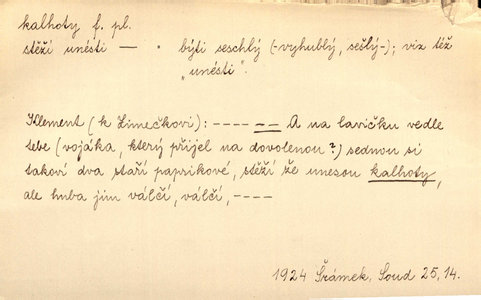 kalhoty f. pl.
stěží unésti — " býti seschlý (-vyhublý, sešlý-); viz též
„unésti".
Klement (k Zimečkovi): ---- -- A na lavičku vedle
tebe (vojáka, který přijel na dovolenou?) sednou si
takoví dva staří paprikové, stěží že unesou kalhoty,
ale huba jim válčí, válčí, ----
1924 Šrámek, Soud 25, 14.